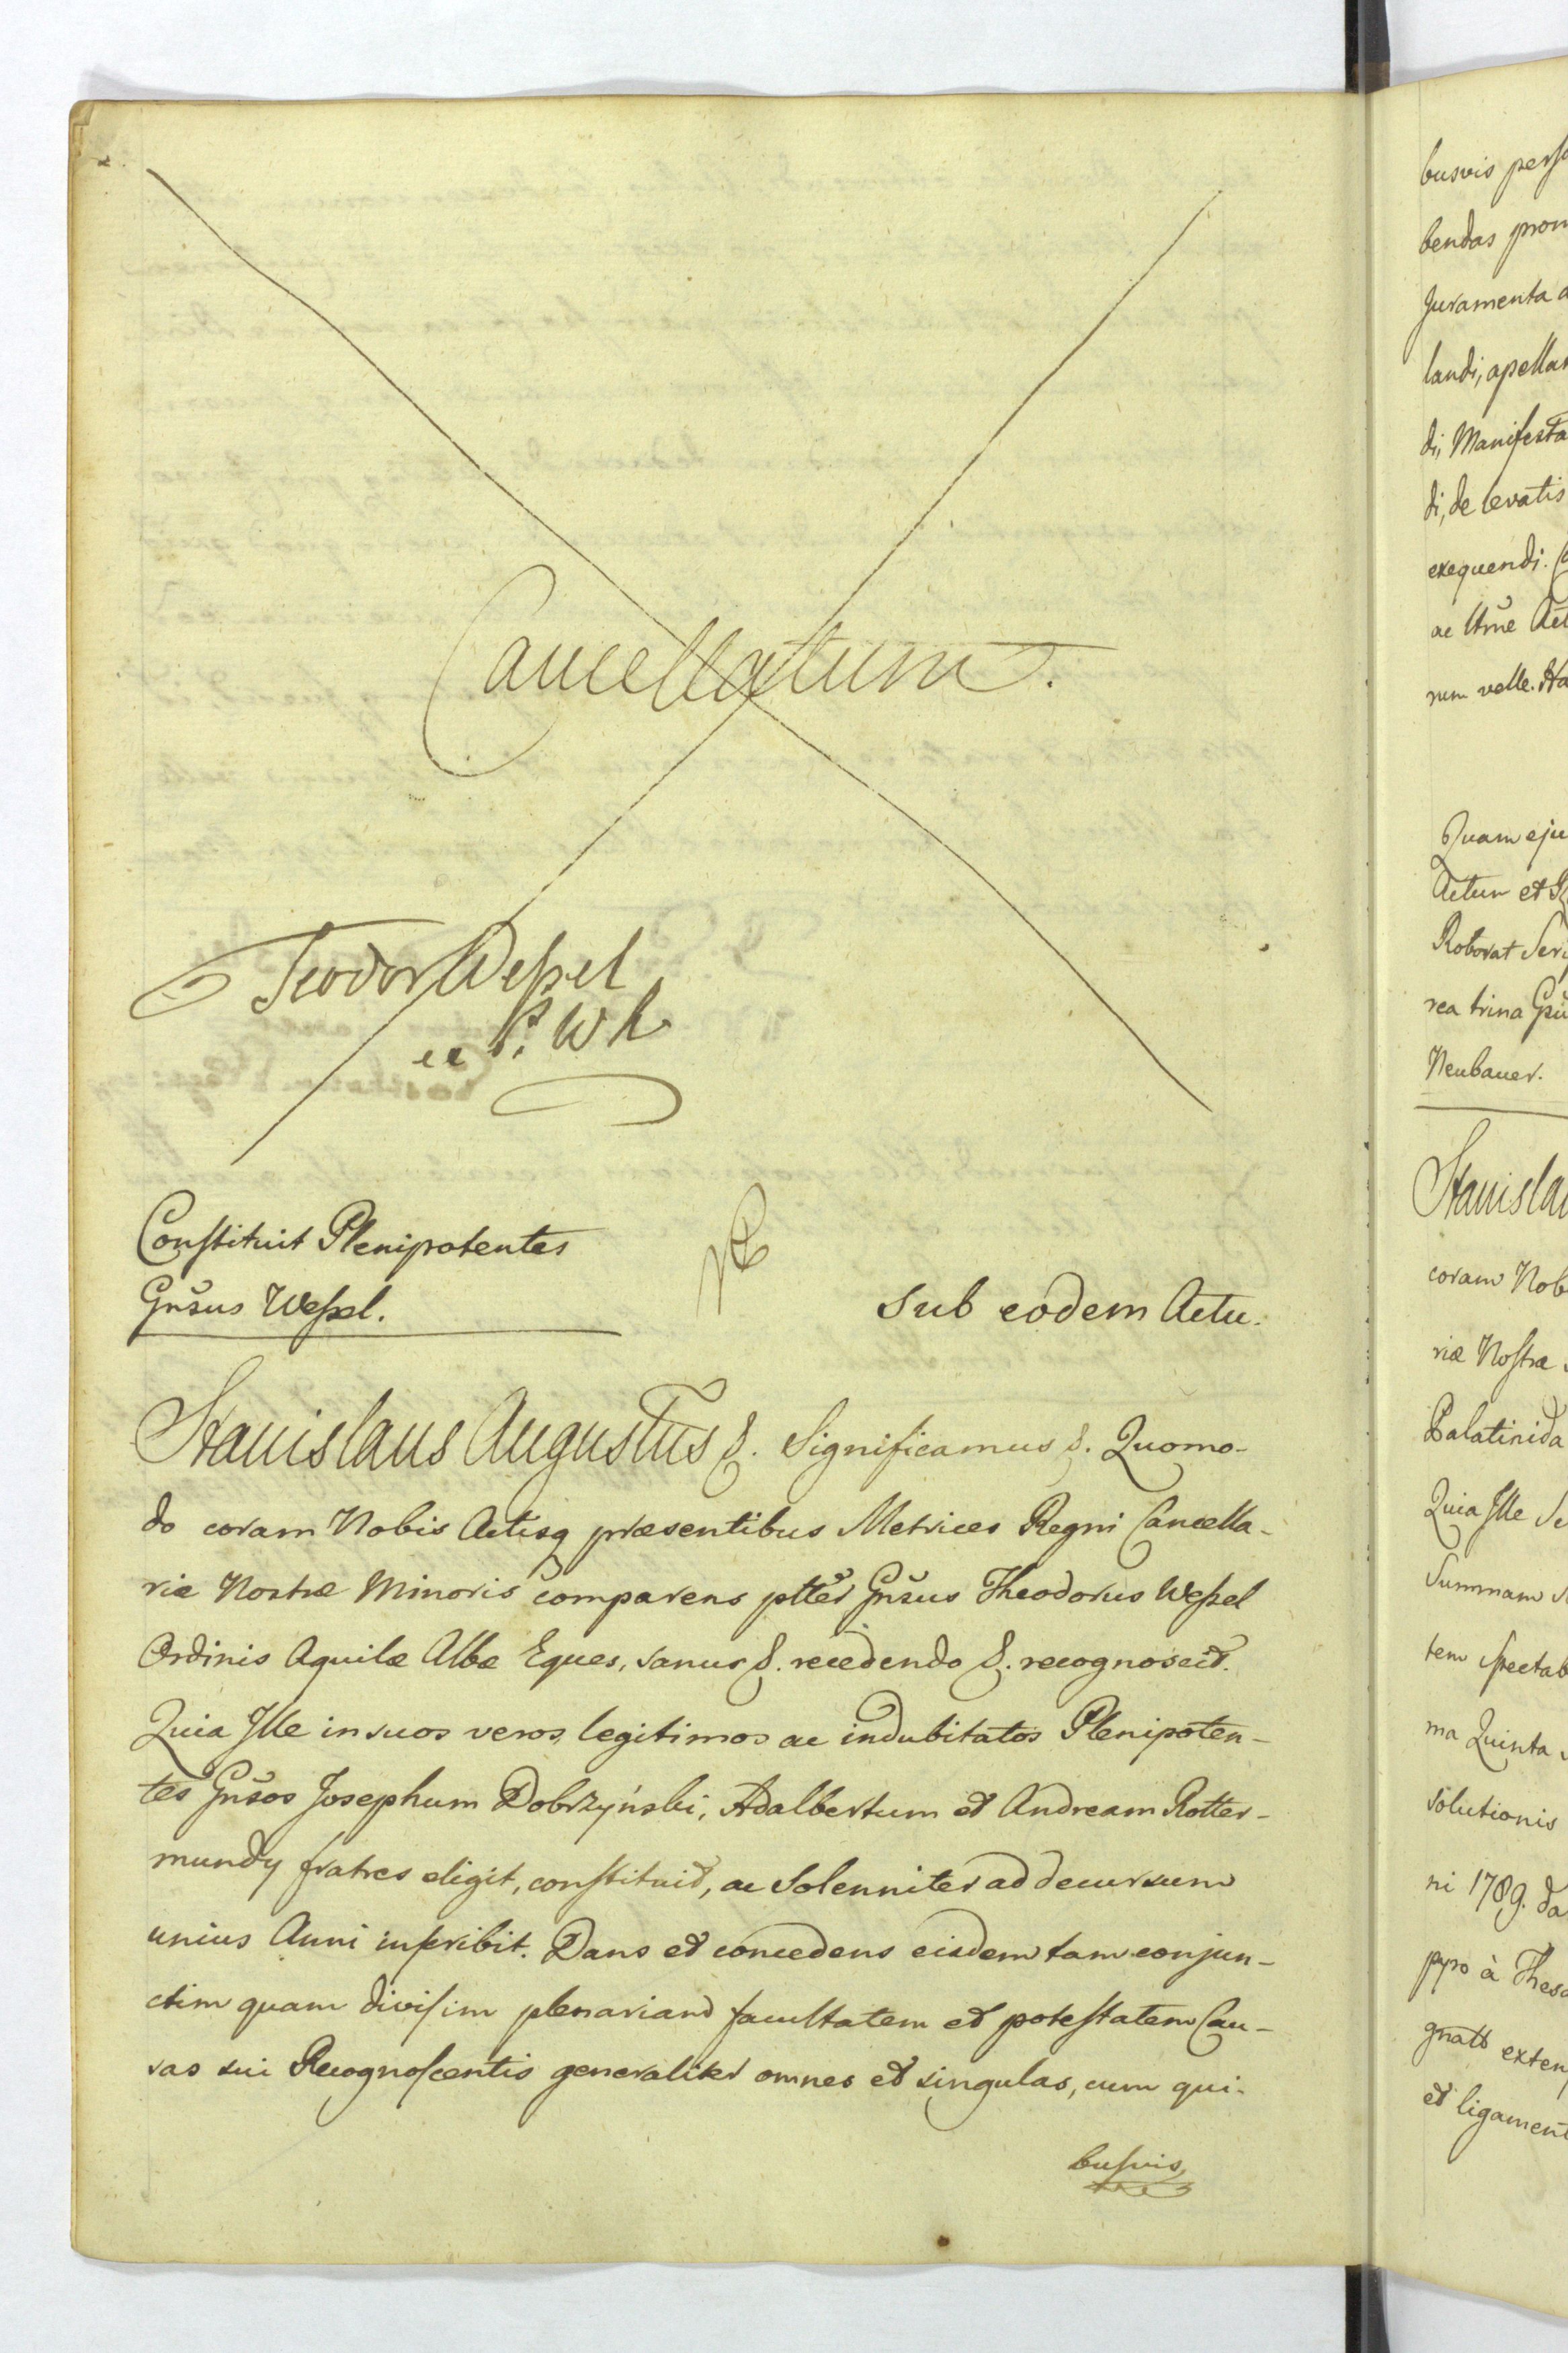 Cancellatum.
Teodor Weſsel
Constituit Plenipotentes
Gnsus Weſsel.
Sub eodem Actu.
Stanislaus Augustus &. Significamus &. Quomo-
do coram Nobis Actisq præsentibus Metrices Regni Cancella-
riæ Nostræ Minoris comparens pltter Gnsus Theodorus Weſsel
Ordinis Aquilæ Albæ Eques, sanus &. recedendo &. recognoscit.
Quia Ille in suos veros, legitimos ac indubitatos Plenipoten-
tes Gnsos Josephum Dobrzyński, Adalbertum et Andream Rotter-
mundy fratres eligit, conſtituit, ac Solenniter ad decursum
unius Anni inſcribit. Dans et concedens eisdem tam conjun-
ctim quam diviſim plenariam facultatem et poteſtatem Cau-
sas sui Recognoſcentis generaliter omnes et singulas, cum qui-
buſvis,
busvis
bendas
Juramenta
landi,
di, Manifesta
di, de levatis
exequendi.
ac
rum velle.
Quam
Actum et
Roborat
rea trina
Neubauer.
coram
riæ Noſtræ
Quia Ille
Summam
tem
ma Quinta
solutionis
ni 1789.
ppro à
exten
et